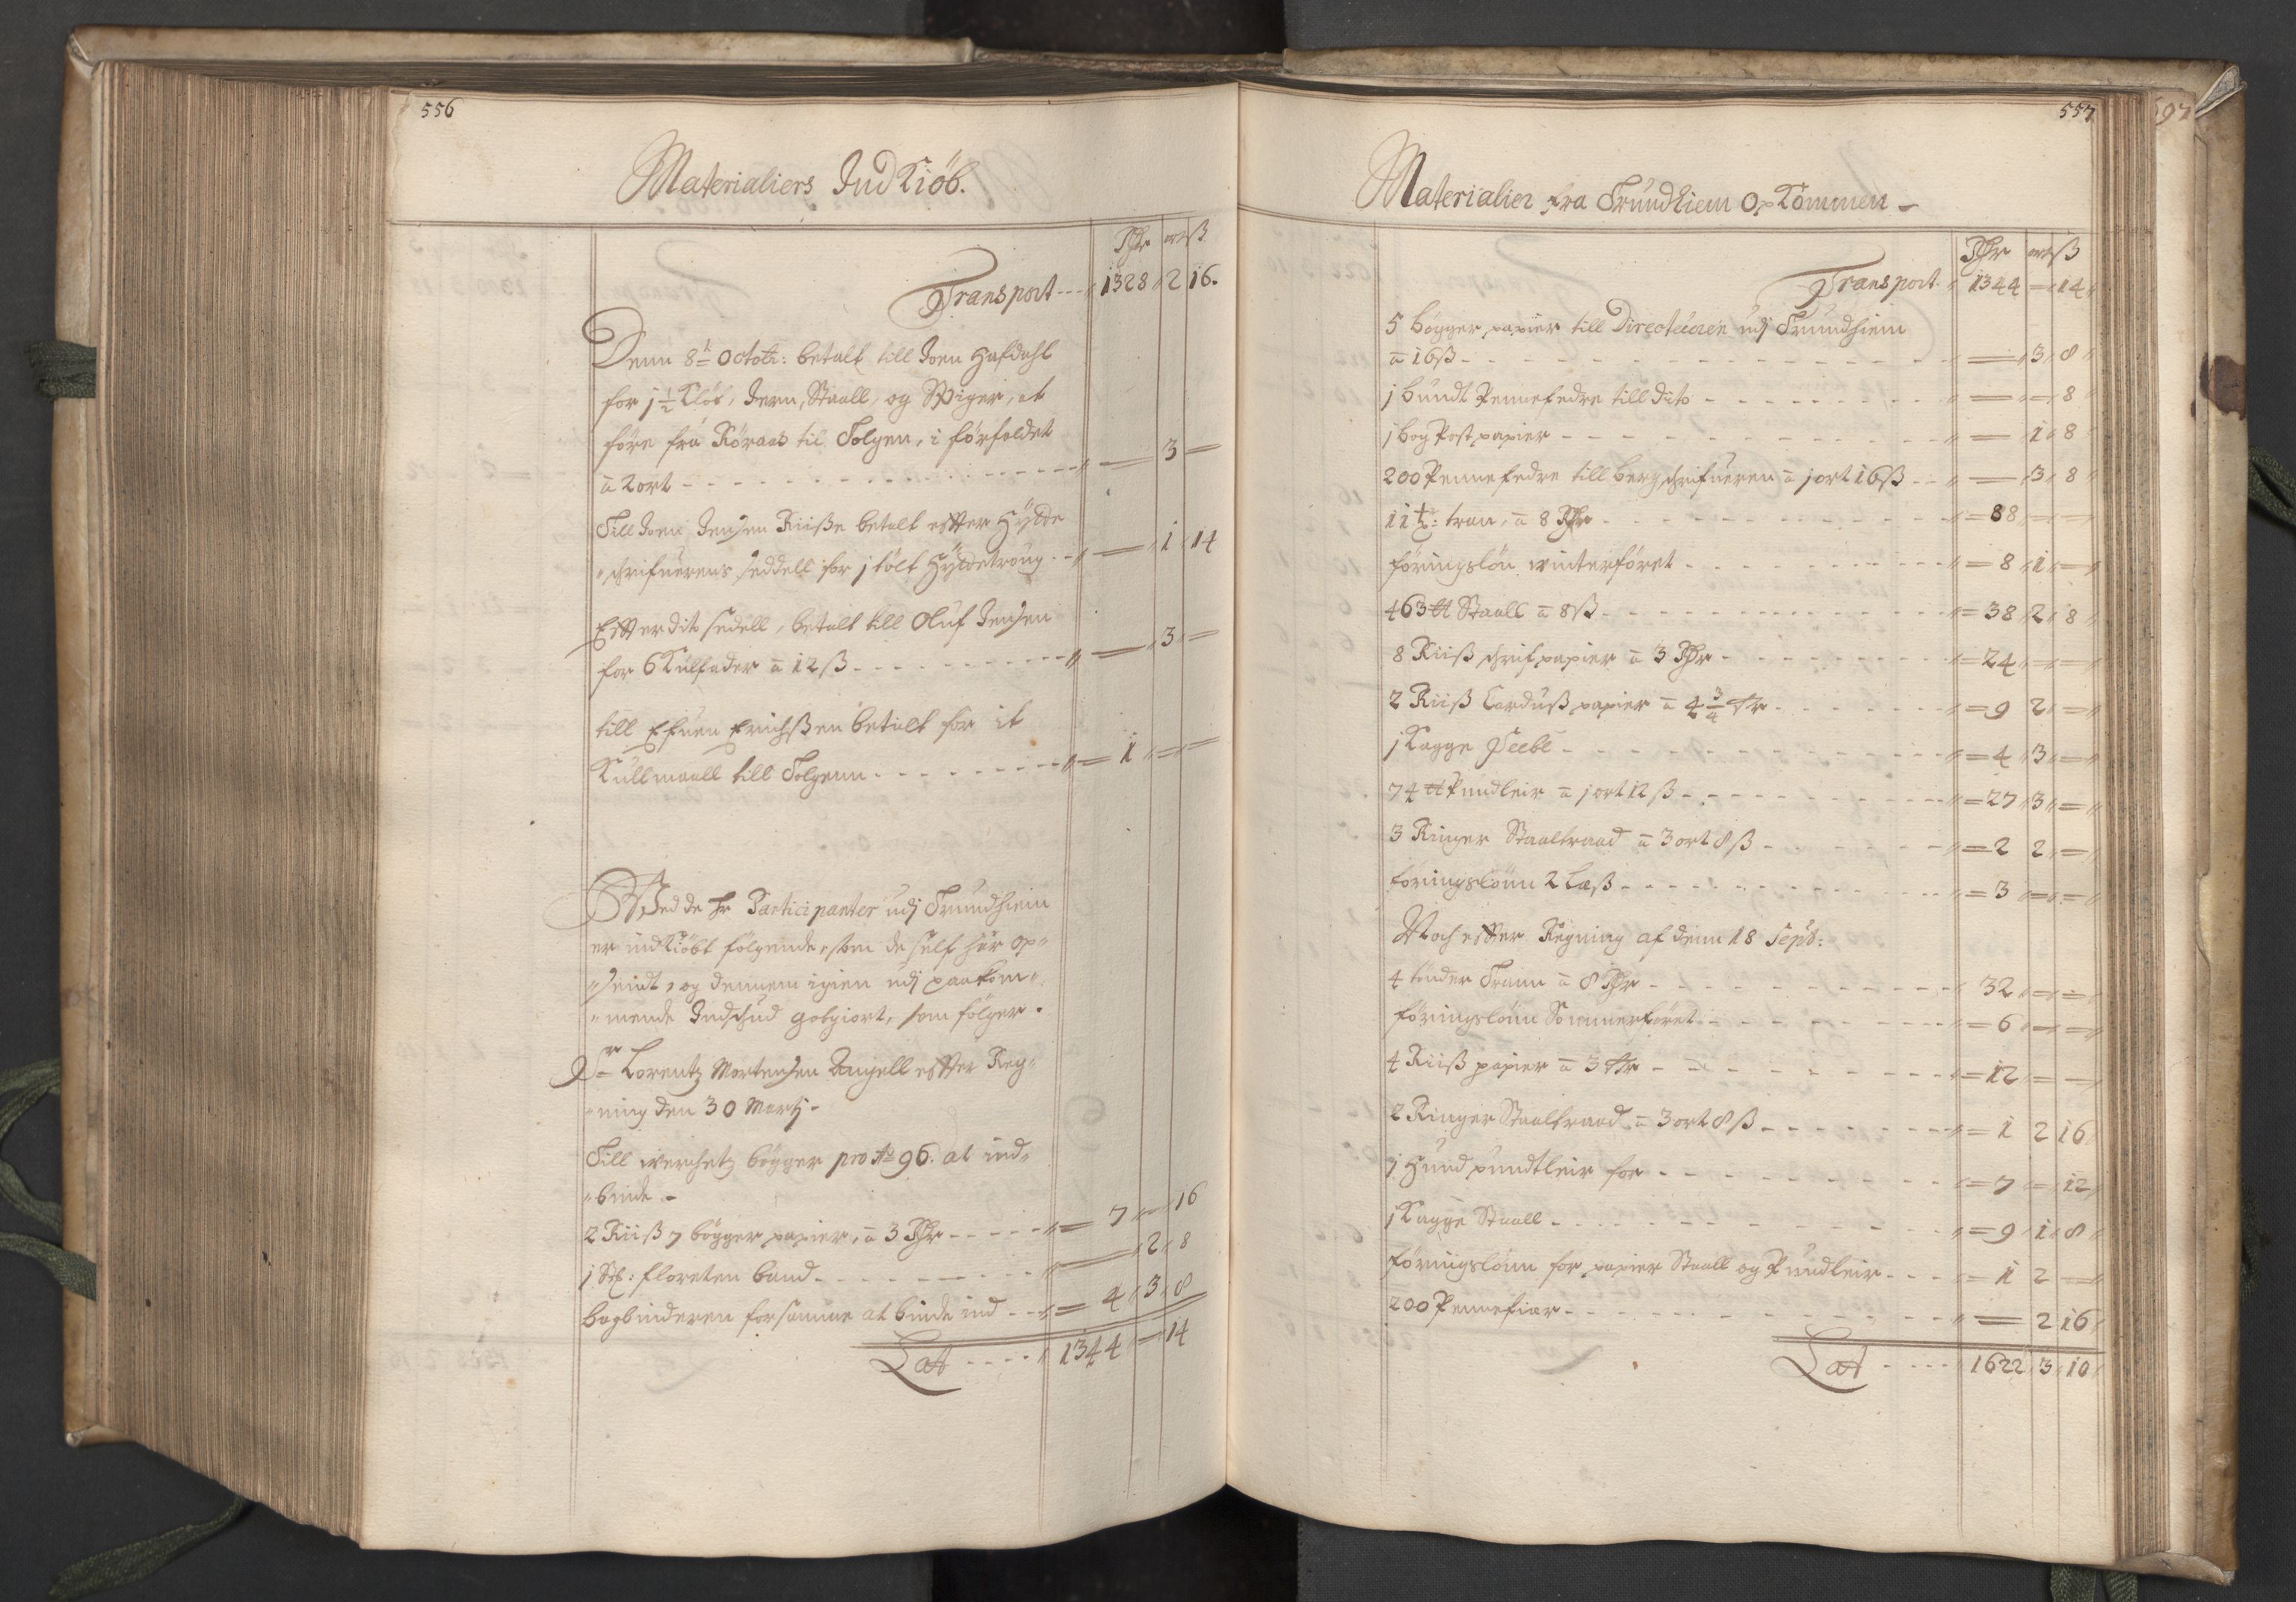 556
Materialiers Ind Kiöb.
Rhr ort ß
Transport --- 1328 2 16.
Denn 8t Octobr: betalt till Joen Hafdahl
for 1 1/2 Kløf, Jern, Staall, og Spiger, at
före fra Röraas til Tolgen, i förfaldet
a 2 ort - - - 3
Till Joen Jensen Riiße betalt effter Hytte
schrifuerens seddell for 1 tölt Hyttetroug - - 1 14
Effter dito sedell, betalt till Oluf Jensen
for 6 Kulfader a 12 ß - - - 3
till Efuen Erichßen betalt for it
Kullmaall till Tolgenn - - - 1
Wed de Hr Participanter udj Trundhiem
er indkiöbt fölgende, som de self her op-
sendt, og dennem igien udj paakom-
mende Indschud godgiort, som fölger.
Sr Lorentz Mortensen Angell effter Reg-
ning den 30 Martj-
Till werchetz bögger pro Ao 96. at ind-
binde -
2 Riiß 7 bögger papier, a 3 Rhr - - - 7 16
1 St: floreten band - - - 2 8
bogbinderen for samme at binde ind - - 4 3 8
Latt - - - 1344 14
557
597
Materialier fra Trundhiem Op Kommen -
Rhr ort ß
Transport 1344 14
5 bögger papier till Directeuren udj Trundhiem
a 16 ß - - - 3 8
1 bundt Pennefedre till dito - - - 8
1 bog Post papier - - - 1 8
200 Pennefedre till bergschrifueren a 1 ort 16 ß - - 3 8
11 t: tran, a 8 Rhr - - - 88
föringslön winterföret - - - 8 1
463 tt Staall a 8 ß - - - 38 2 8
8 Riiß schrifpapier a 3 Rhr - - - 24
2 Riiß Carduß papier a 4 3/4 Rr - - - 9 2
1 Kagge - - - 4 3
74 tt Pundleir a 1 ort 12 ß - - - 27 3
3 Ringer Staaltraad a 3 ort 8 ß - - - 2 2
föringslönn 2 Læß - - - 3
Noch effter Regning af denn 18 Septb:
4 tönder Trann a 8 Rhr - - - 32
föringslönn Sommerföret - - - 6
4 Riiß papier a 3 Rr - - - 12
2 Ringer Staaltraad a 3 ort 8 ß - - - 1 2 16
1 Hund pundtleir for - - - 7 12
1 Kagge Staall - - - 9 1 8
föringslönn for papier Staall og Pundleir - - - 1 2
200 Pennefiær - - - 2 16
Lat - - - 1622 3 10